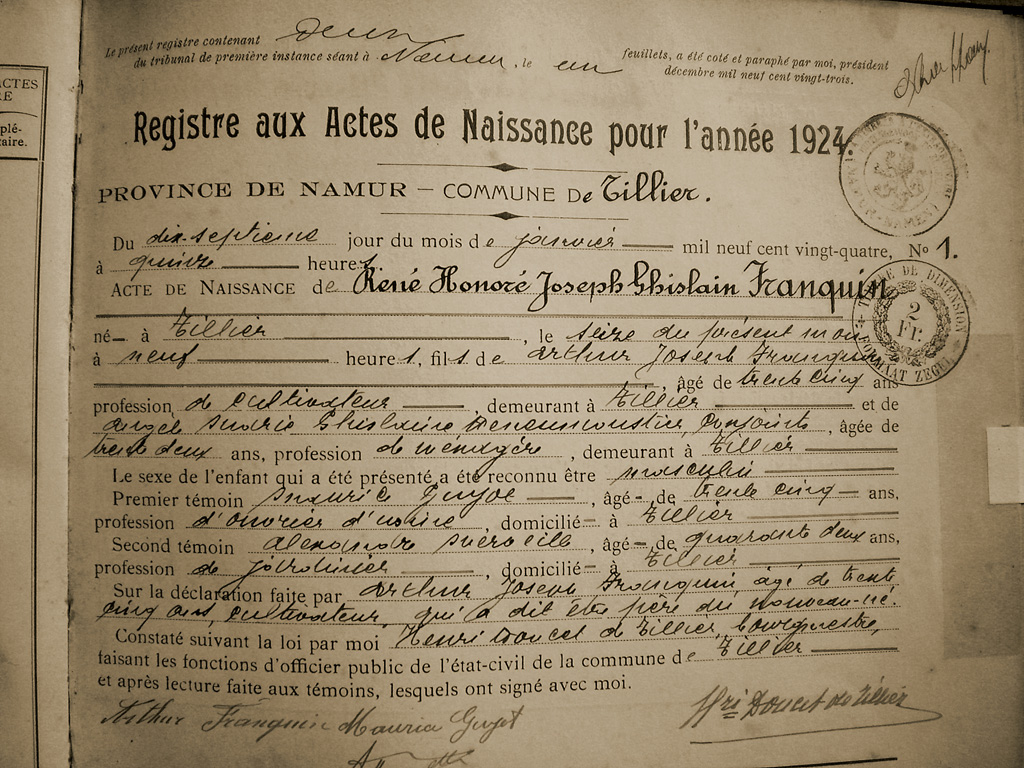 Le présent registre contenant Deux feuillets, a été coté et paraphé par moi, président
du tribunal de première instance séant à Namur, le un décembre mil neuf cent vingt-trois.
ACTES
RE
plé-
taire.
Registre aux Actes de Naissance pour l'année 1924.
PROVINCE DE NAMUR — COMMUNE De Tillier.
Du dix-septième jour du mois de janvier mil neuf cent vingt-quatre, No 1.
à quinze heures.
ACTE DE NAISSANCE de René Honoré Joseph Ghislain Franquin
DE DIMENSION
2
FR.
FORMAAT ZEGEL
né à Tillier, le seize du présent mois
à neuf heures, fils de Arthur Joseph Franquin
, âgé de trente cinq ans
profession de cultivateur, demeurant à Tillier et de
Marie Ghislaine conjoints, âgée de
trente deux ans, profession de ménagère, demeurant à Tillier
Le sexe de l'enfant qui a été présenté a été reconnu être masculin
Premier témoin Maurice Guyot, âgé de trente cinq ans,
profession d'ouvrier d'usine, domicilié à Tillier
Second témoin Alexandre, âgé de quarante deux ans,
profession de jardinier, domicilié à Tillier
Sur la déclaration faite par Arthur Joseph Franquin âgé de trente
cinq ans, cultivateur, qui a dit être père du nouveau-né.
Constaté suivant la loi par moi Henri Doucet de Tillier, bourgmestre,
faisant les fonctions d'officier public de l'état-civil de la commune de Tillier
et après lecture faite aux témoins, lesquels ont signé avec moi.
Arthur Franquin Maurice Guyot
Hri Doucet de Tillier